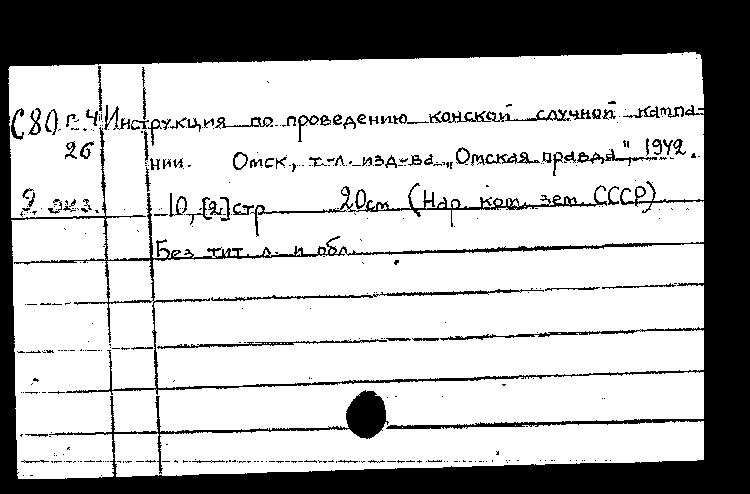 С80 п.4 Инструкция по проведению конской случной кампа-
26 нии. Омск, т-л. изд-ва „Омская правда", 1942.
2 экз. 10, [2] стр 20 см (Нар. ком. зем. СССР)
Без тит. л. и обл.